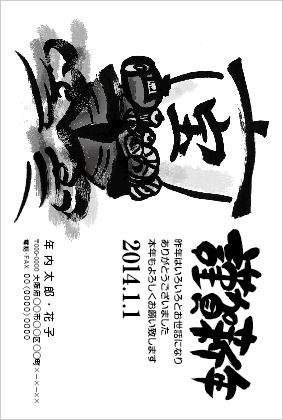 宝
謹賀新年
昨年はいろいろとお世話になり
ありがとうございました
本年もよろしくお願い致します
2014.1.1
年内太郎・花子
〒000-0000 大阪府〇〇市〇〇区〇〇町×-×-××
電話・FAX 00(0000)0000